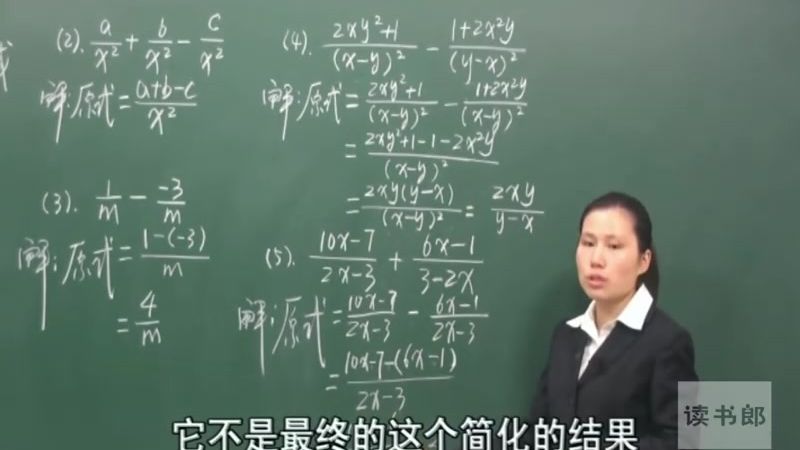 (2). a/x² + b/x² - c/x²
解:原式 = (a+b-c)/x²
(3). 1/m - -3/m
解:原式 = (1-(-3))/m
= 4/m
(4). (2xy²+1)/(x-y)² - (1+2x²y)/(y-x)²
解:原式 = (2xy²+1)/(x-y)² - (1+2x²y)/(x-y)²
= (2xy²+1-1-2x²y)/(x-y)²
= 2xy(y-x)/(x-y)² = 2xy/(y-x)
(5). (10x-7)/(2x-3) + (6x-1)/(3-2x)
解:原式 = (10x-7)/(2x-3) - (6x-1)/(2x-3)
= (10x-7-(6x-1))/(2x-3)
读书郎
它不是最终的这个简化的结果